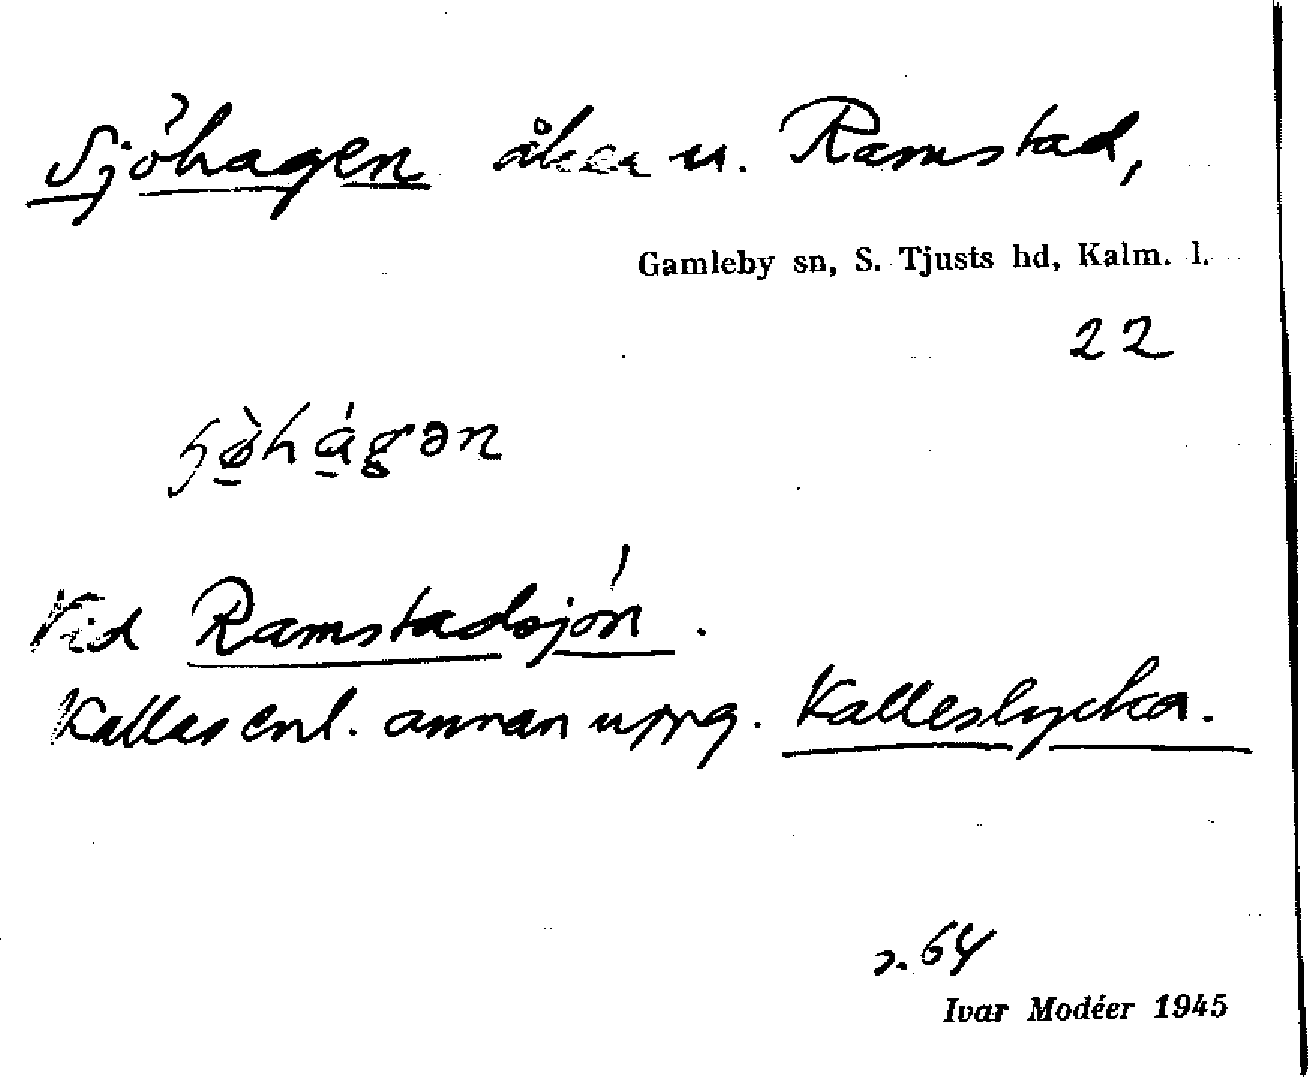 Sjöhagen åker u. Ramstad,
Gamleby sn, S. Tjusts hd, Kalm. l.
22
Vid Ramstadsjön.
Kallas enl. annan uppg. Kalleslycka.
s. 64
Ivar Modéer 1945